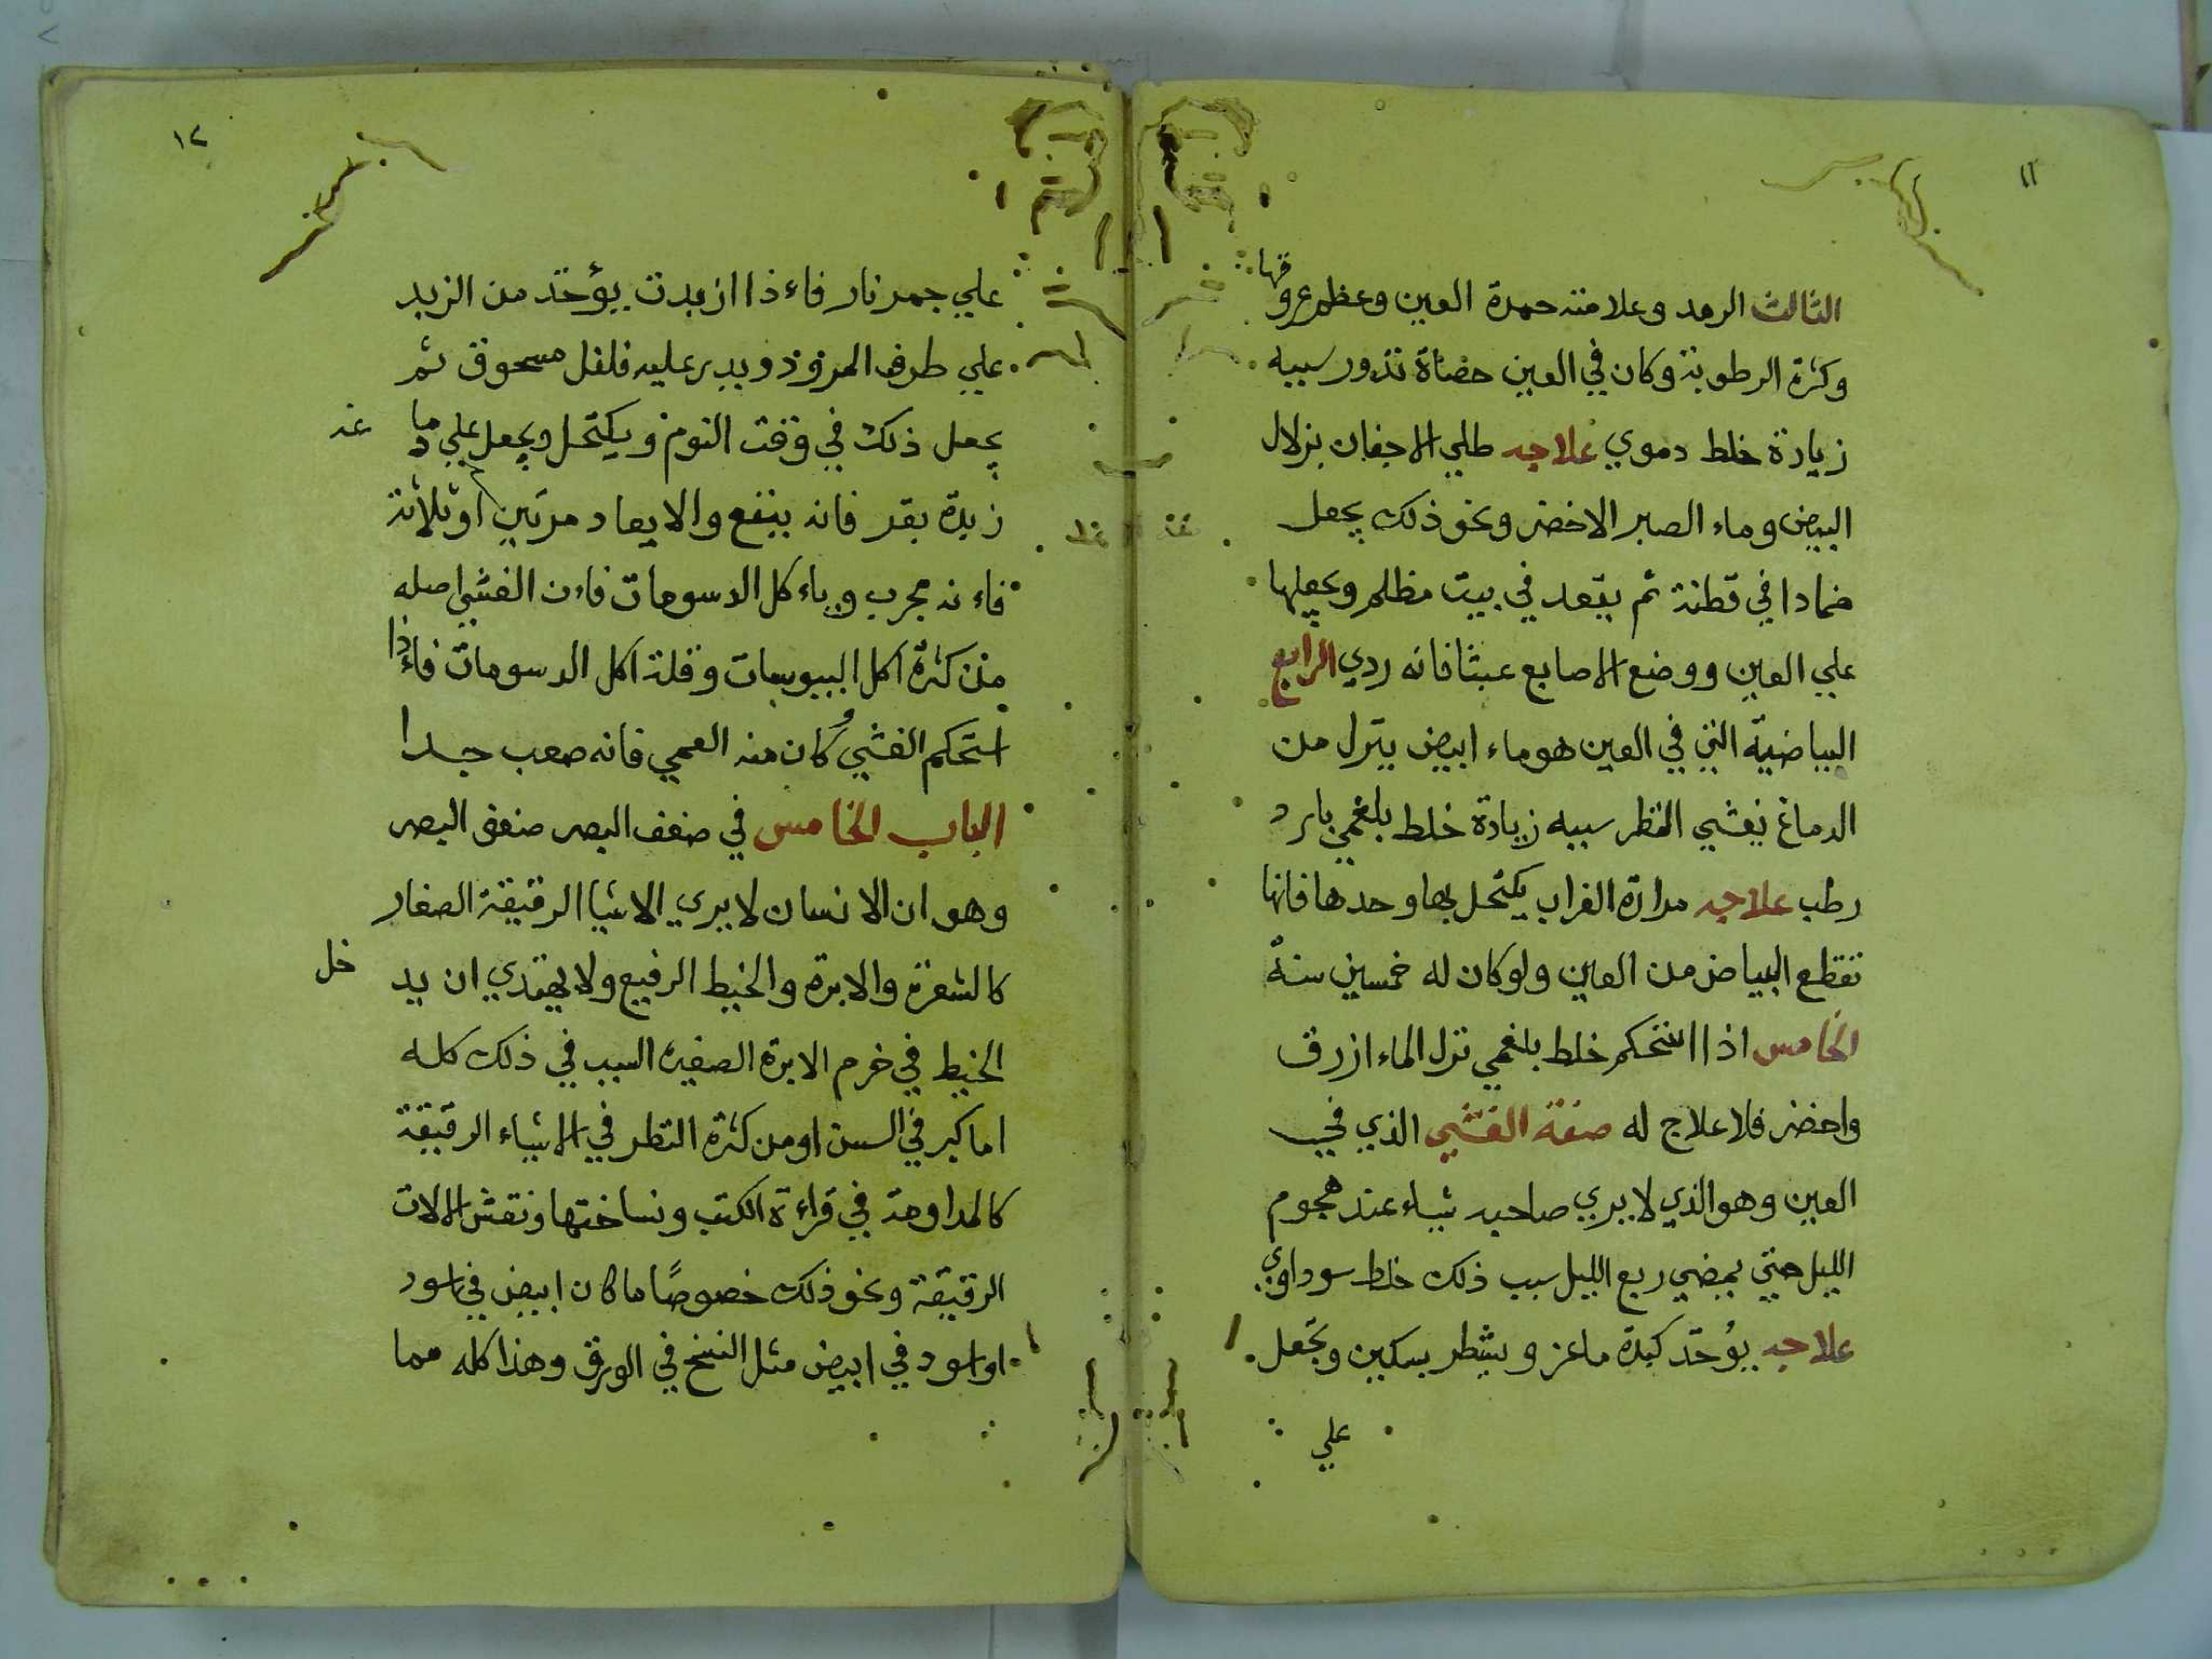 ١١
الثالث الرمد وعلامته حمرة العين وعظم عروقها
وكثرة الرطوبة وكان في العين حصاة تدور سببه
زيادة خلط دموي علاجه طلي الاجفان بزلال
البيض وماء الصبر الاخضر ونحو ذلك يجعل
ضمادا في قطنة ثم يقعد في بيت مظلم ويجعلها
علي العين ووضع الاصابع عبثا فانه ردي الرابع
البياضية التي في العين هو ماء ابيض ينزل من
الدماغ يغشي النظر سببه زيادة خلط بلغمي بارد
رطب علاجه مرارة الغراب يكتحل بها وحدها فانها
تقطع البياض من العين ولو كان له خمسين سنة
الخامس اذا استحكم خلط بلغمي نزل الماء ازرق
واخضر فلا علاج له صفة الغشي الذي في
العين وهو الذي لا يري صاحبه شياء عند هجوم
الليل حتي يمضي ربع الليل سبب ذلك خلط سوداوي
علاجه يؤخذ كبدة ماعز ويشطر بسكين وتجعل
علي
١٢
علي جمر نار فاءذا ازبدت يؤخذ من الزبد
علي طرف المرود ويدر عليه فلفل مسحوق ثم
يجعل ذلك في وقت النوم ويكتحل ويجعل علي دماغه
زبدة بقر فانه ينفع والا يعاد مرتين اوثلاثة
فاءنه مجرب وياءكل الدسومات فاءن الغشي اصله
من كثرة اكل اليبوسات وقلة اكل الدسومات فاءذا
استحكم الغشي وكان منه العمي فانه صعب جدا
الباب الخامس في ضعف البصر ضعف البصر
وهو ان الانسان لا يري الاشيا الرقيقة الصغار
كالشعرة والابرة والخيط الرفيع ولا يهتدي ان يدخل
الخيط في خرم الابرة الصغيرة السبب في ذلك كله
اما كبر في السن او من كثرة النظر في الاشياء الرقيقة
كالمداومة في قراءة الكتب ونساختها ونقش الالات
الرقيقة ونحو ذلك خصوصًا ما كان ابيض في اسود
او اسود في ابيض مثل النسخ في الورق وهذا كله مما